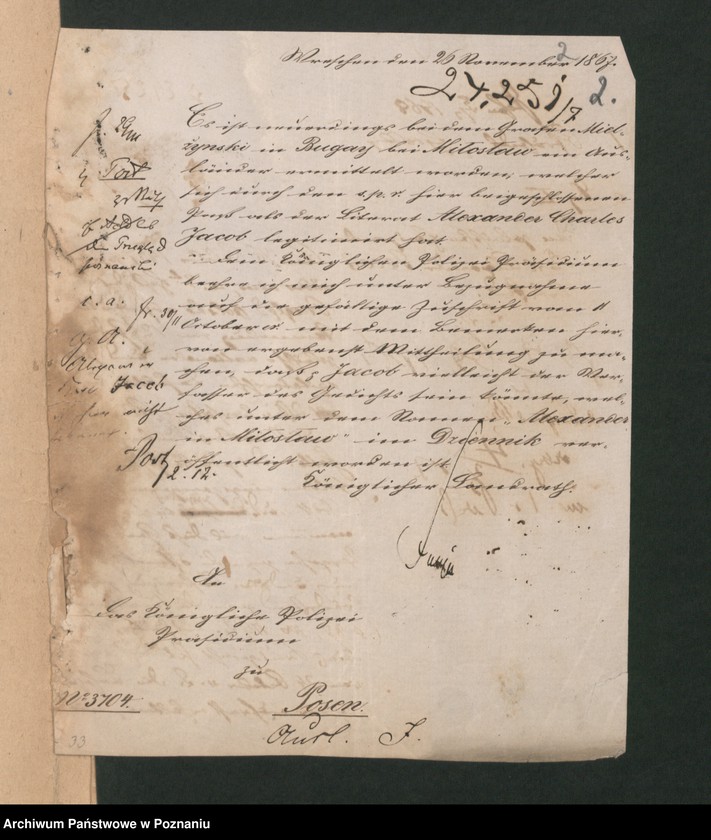 Wreschen den 26 November 1867.
2
24,251/7 2.
Es ist neuerdings bei dem Grafen Miel-
zynski in Bugay bei Miloslaw ein Aus-
länder ermittelt worden, welcher
sich durch den s. p. r. hier beigeschlossenen
Paß als der Literat Alexander Charles
Jacob legitimirt hat.
Dem Königlichen Polizei Präsidium
beehre ich mich unter Bezugnahme
auf die gefällige Zuschrift vom 11
October cr. mit dem Bemerken hier-
von ergebenst Mittheilung zu ma-
chen, daß p. Jacob vielleicht der Ver-
fasser des Gedichts sein könnte, wel-
ches unter dem Namen "Alexander
in Miloslaw" im Dziennik ver-
öffentlicht worden ist.
Königlicher Landrath.
Post
c. a.
g. A.
Jacob
nicht
Post
2.12.
An
das Königliche Polizei
Präsidium
zu
Posen.
No 3704.
33
J.
Archiwum Państwowe w Poznaniu